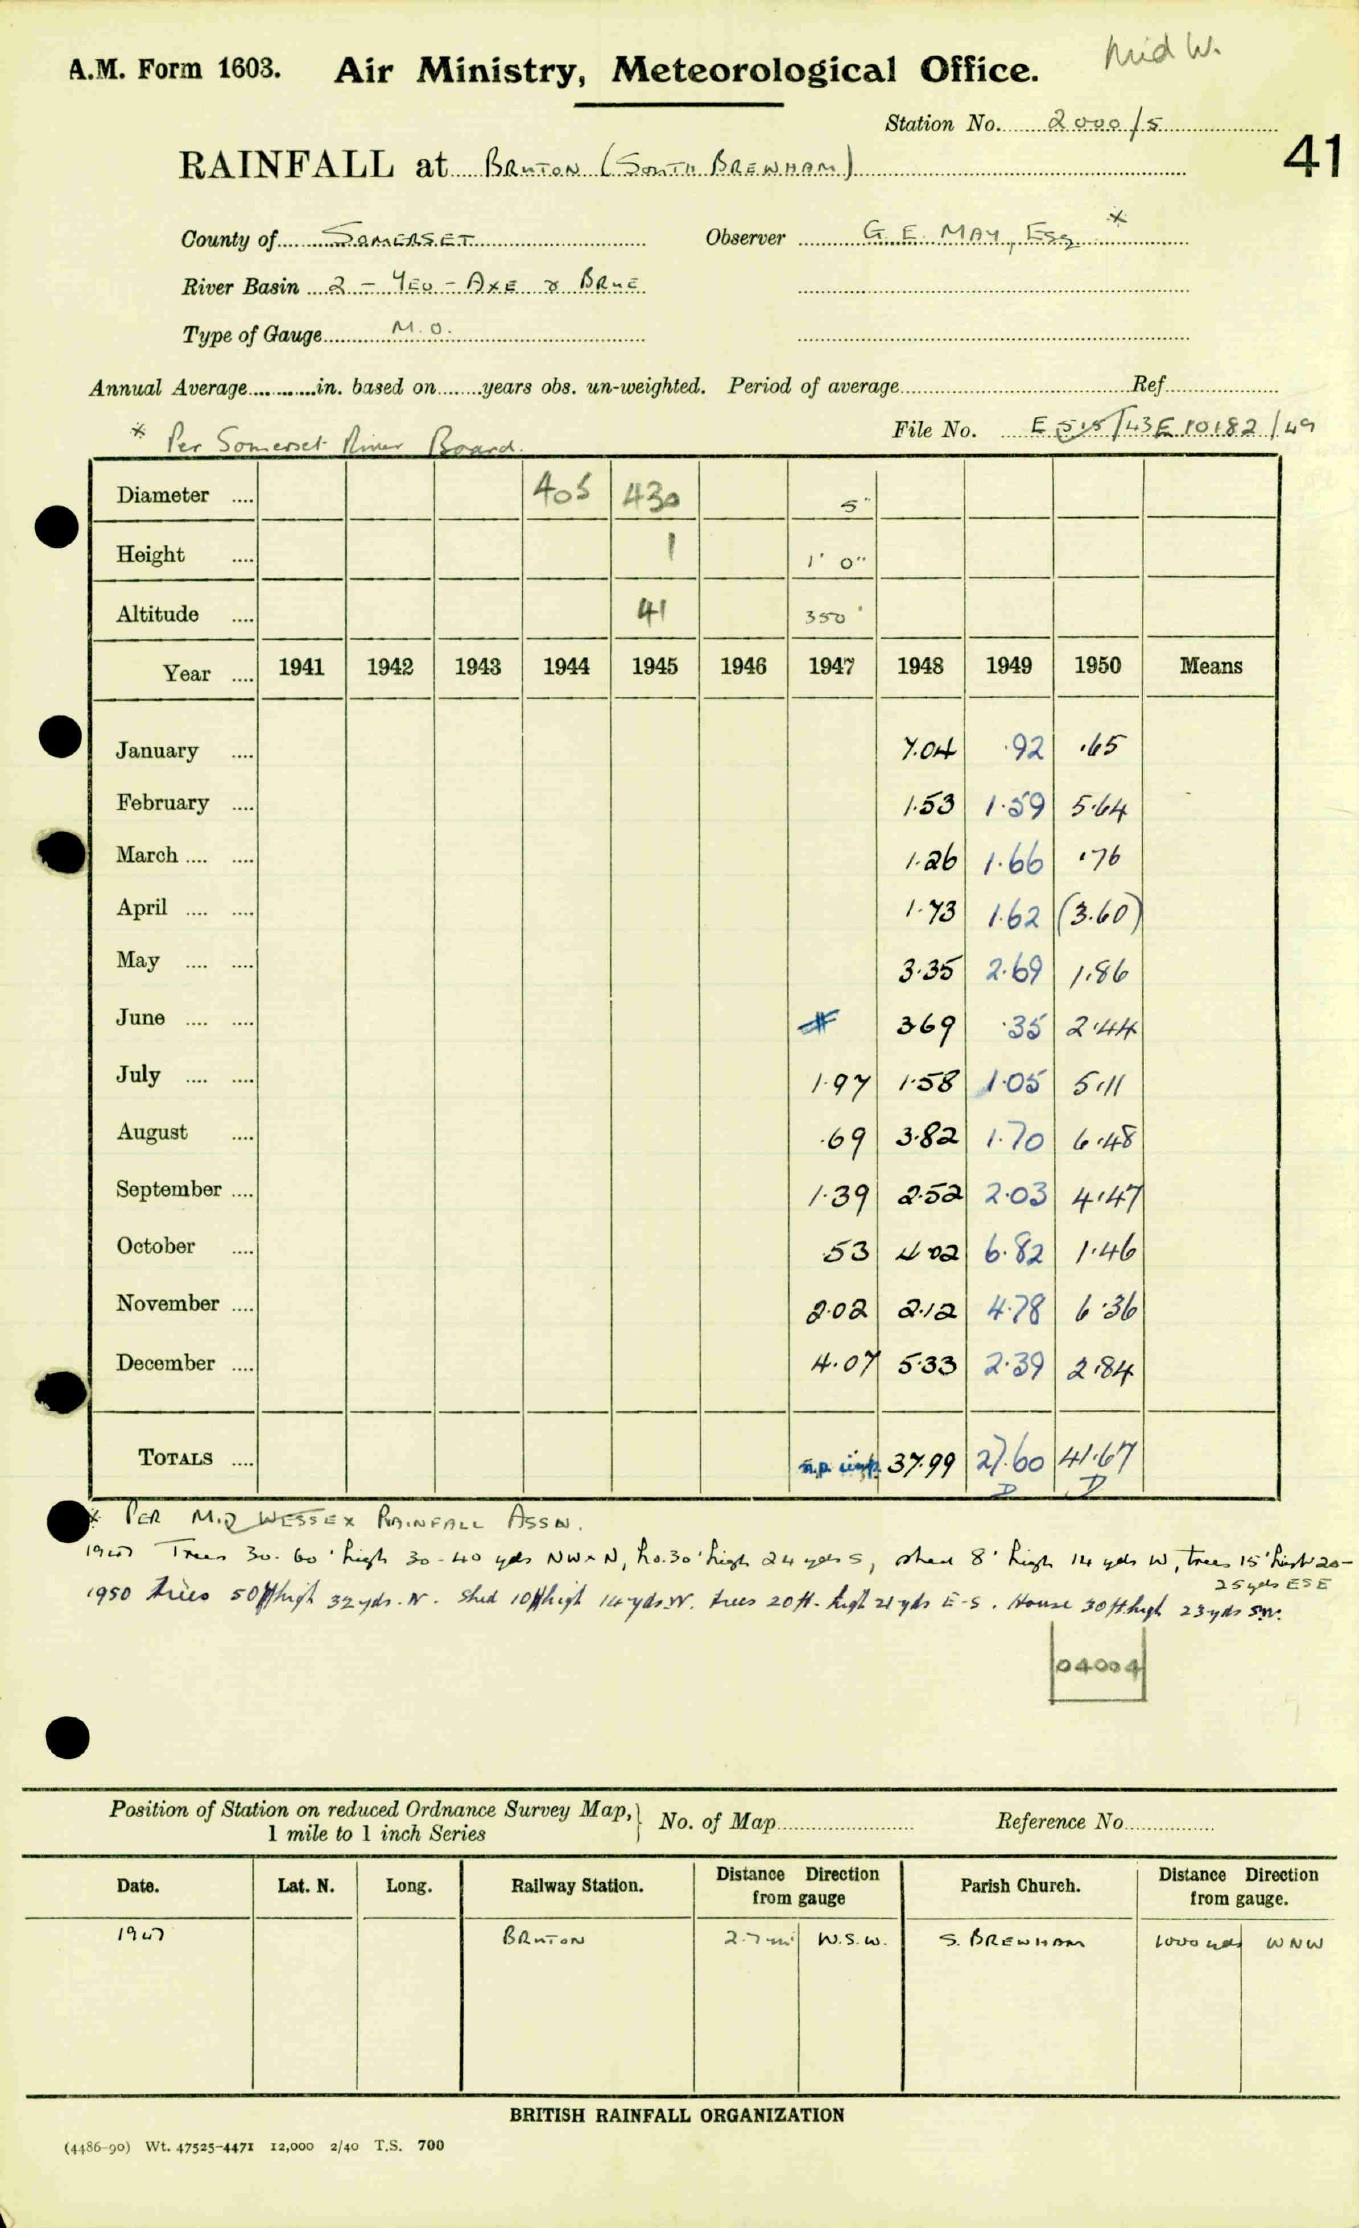 Mid W.
A.M. Form 1603. Air Ministry, Meteorological Office.
Station No. 2000/5
41
RAINFALL at BRUTON (SOUTH BREWHAM)
County of SOMERSET Observer G. E. MAY, Esq *
River Basin 2 - YEO - AXE & BRUE
Type of Gauge M.O.
Annual Average in. based on years obs. un-weighted. Period of average Ref
File No. E 10182/49
* Per Somerset River Board.
Diameter .... 405 430 5"
Height .... 1 1' 0"
Altitude .... 41 350'
Year .... 1941 1942 1943 1944 1945 1946 1947 1948 1949 1950 Means
January .... 7.04 .92 .65
February .... 1.53 1.59 5.64
March .... .... 1.26 1.66 .76
April .... .... 1.73 1.62 (3.60)
May .... .... 3.35 2.69 1.86
June .... .... # 369 .35 2.44
July .... .... 1.97 1.58 1.05 5.11
August .... .69 3.82 1.70 6.48
September .... 1.39 2.52 2.03 4.47
October .... .53 4.02 6.82 1.46
November .... 2.02 2.12 4.78 6.36
December .... 4.07 5.33 2.39 2.84
TOTALS .... n.p. 37.99 27.60 41.67
D D
* PER MID WESSEX RAINFALL ASSN.
1947 Trees 30-60' high 30-40 yds NW-N, ho. 30' high 24 yds S, shed 8' high 14 yds W, trees 15' high 20-
25 yds ESE
1950 trees 50ft high 32 yds. N. Shed 10ft high 14 yds. W. trees 20 ft. high 21 yds E-S. House 30 ft. high 23 yds S.W.
04004
Position of Station on reduced Ordnance Survey Map, } No. of Map Reference No
1 mile to 1 inch Series
Date. Lat. N. Long. Railway Station. Distance Direction from gauge Parish Church. Distance Direction from gauge.
1947 BRUTON 2.7 mi W.S.W. S. BREWHAM 1000 yds WNW
BRITISH RAINFALL ORGANIZATION
(4486-90) Wt. 47525-4471 12,000 2/40 T.S. 700